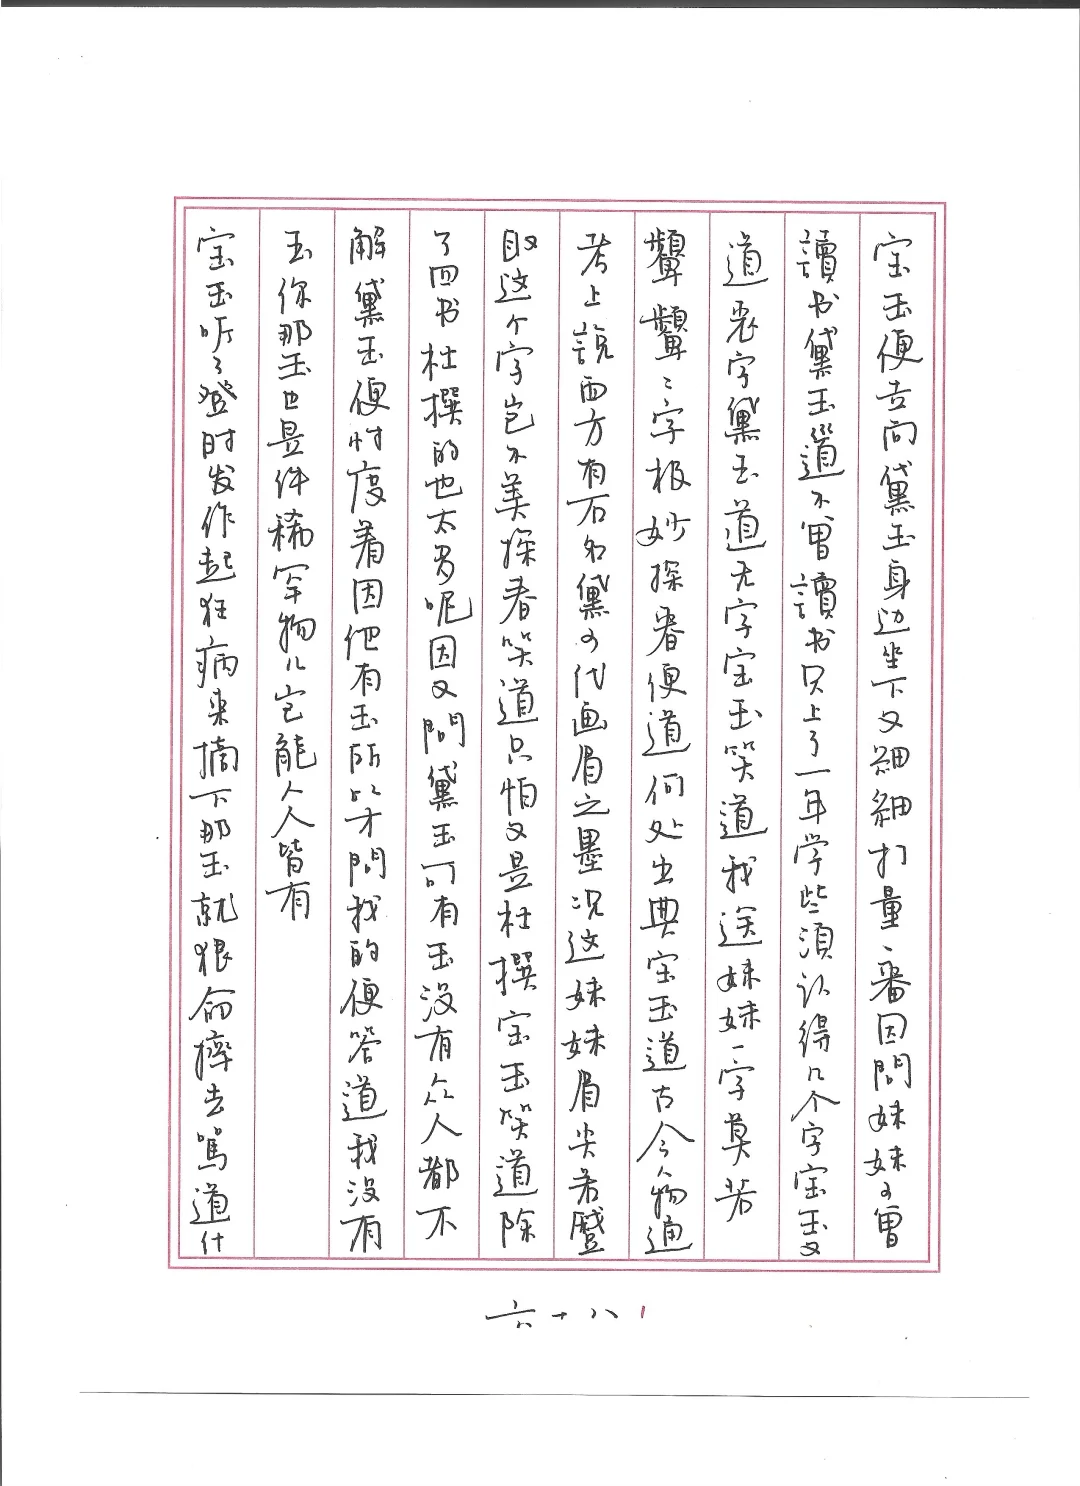 宝玉便去向黛玉身边坐下又細細打量一番因問妹妹可曾
讀书黛玉道不曾讀书只上了一年学些須认得几个字宝玉又
道表字黛玉道无字宝玉笑道我送妹妹一字莫若
顰顰二字极妙探春便道何处出典宝玉道古今人物通
考上說西方有石名黛可代画眉之墨况这妹妹眉尖若蹙
取这个字岂不美探春笑道只怕又是杜撰宝玉笑道除
了四书杜撰的也太多呢因又問黛玉可有玉没有众人都不
解黛玉便忖度着因他有玉所以才問我的便答道我没有
玉你那玉也是件稀罕物儿岂能人人皆有
宝玉听了登时发作起狂病来摘下那玉就狠命摔去骂道什
六十八